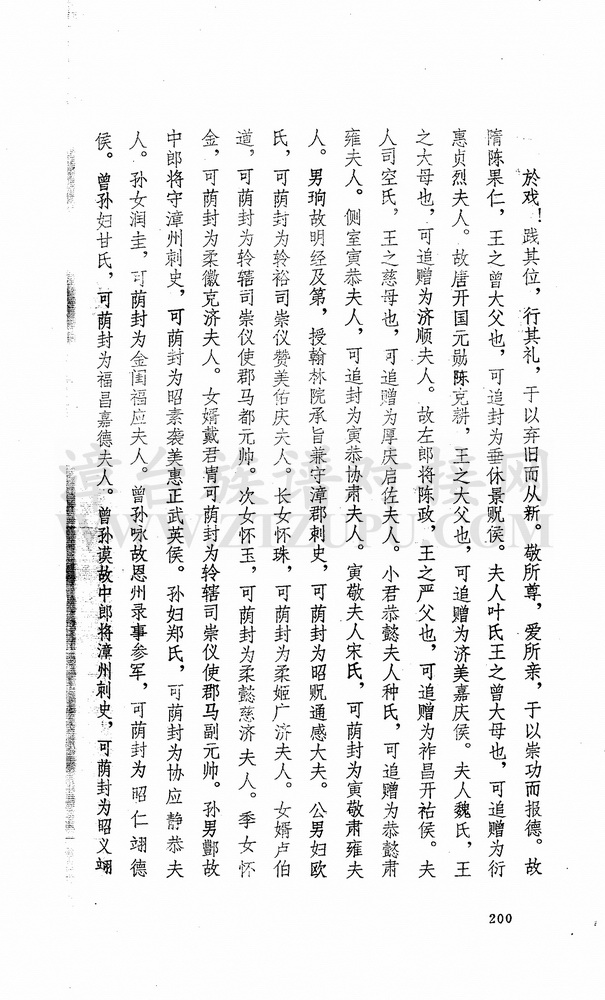 於戏！践其位，行其礼，于以弃旧而从新。敬所尊，爱所亲，于以崇功而报德。故
隋陈果仁，王之曾大父也，可追封为垂休景贶侯。夫人叶氏王之曾大母也，可追赠为衍
惠贞烈夫人。故唐开国元勋陈克耕，王之大父也，可追赠为济美嘉庆侯。夫人魏氏，王
之大母也，可追赠为济顺夫人。故左郎将陈政，王之严父也，可追赠为祚昌开祐侯。夫
人司空氏，王之慈母也，可追赠为厚庆启佐夫人。小君恭懿夫人种氏，可追赠为恭懿肃
雍夫人。侧室寅恭夫人，可追封为寅恭协肃夫人。寅敬夫人宋氏，可荫封为寅敬肃雍夫
人。男珦故明经及第，授翰林院承旨兼守漳郡刺史，可荫封为昭贶通感大夫。公男妇欧
氏，可荫封为𫐉裕司崇仪赞美佑庆夫人。长女怀珠，可荫封为柔姬广济夫人。女婿卢伯
道，可荫封为𫐉辖司崇仪使郡马都元帅。次女怀玉，可荫封为柔懿慈济夫人。季女怀
金，可荫封为柔徽克济夫人。女婿戴君胄可荫封为𫐉辖司崇仪使郡马副元帅。孙男酆故
中郎将守漳州刺史，可荫封为昭素袭美惠正武英侯。孙妇郑氏，可荫封为协应静恭夫
人。孙女润圭，可荫封为金闺福应夫人。曾孙咏故恩州录事参军，可荫封为昭仁翊德
侯。曾孙妇甘氏，可荫封为福昌嘉德夫人。曾孙谟故中郎将漳州刺史，可荫封为昭义翊
200
漳台族谱对接网
WWW.ZTZUPU.COM